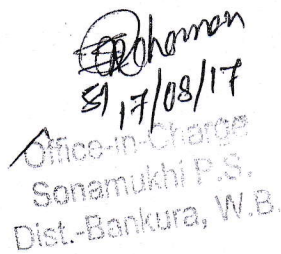 SI 17/08/17
Office-in-Charge
Sonamukhi P.S.
Dist.-Bankura, W.B.